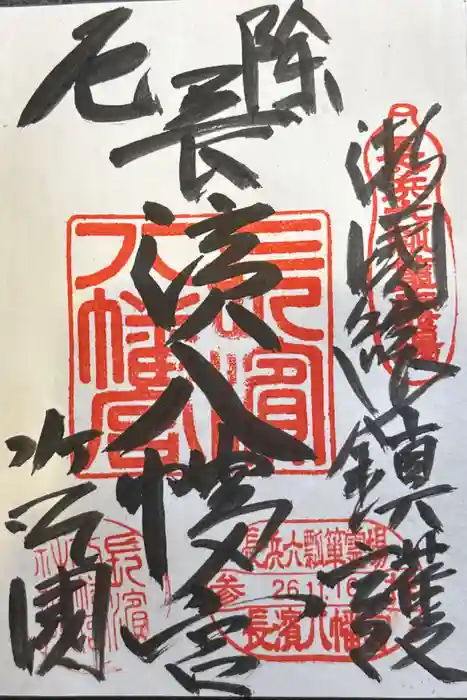 湖國総鎮護
厄除
長濱八幡宮
長濱八幡宮
長浜六瓢箪霊場
参 26.11.16
長濱八幡宮